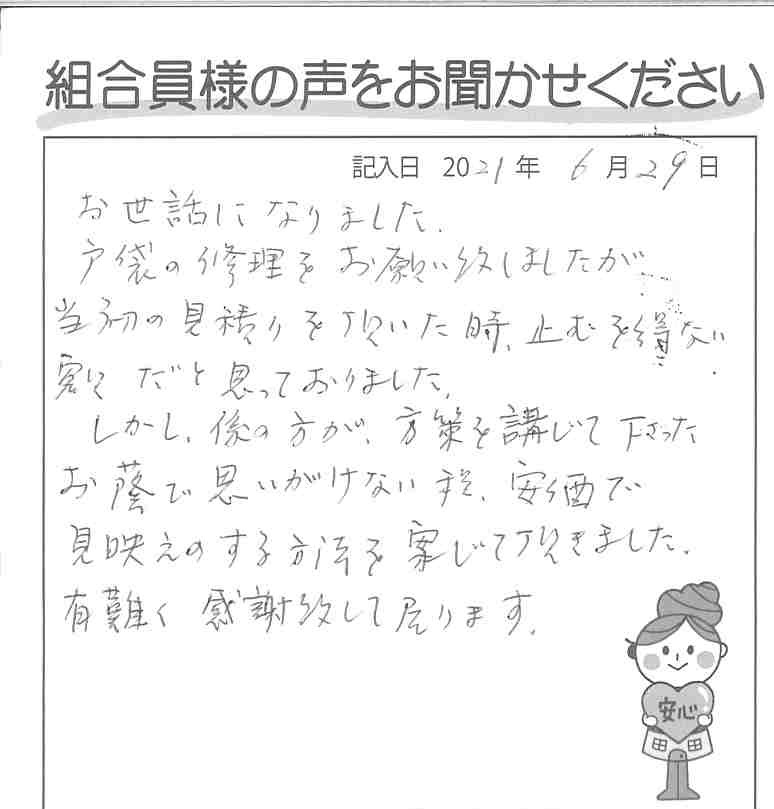 組合員様の声をお聞かせください
記入日 2021年 6月29日
お世話になりました.
戸袋の修理をお願い致しましたが
当初の見積りを頂いた時、止むを得ない
額だと思っておりました。
しかし、係の方が、方策を講じて下さった
お蔭で思いがけない程、安価で
見映えのする方法を案じて頂きました.
有難く感謝致して居ります.
安心